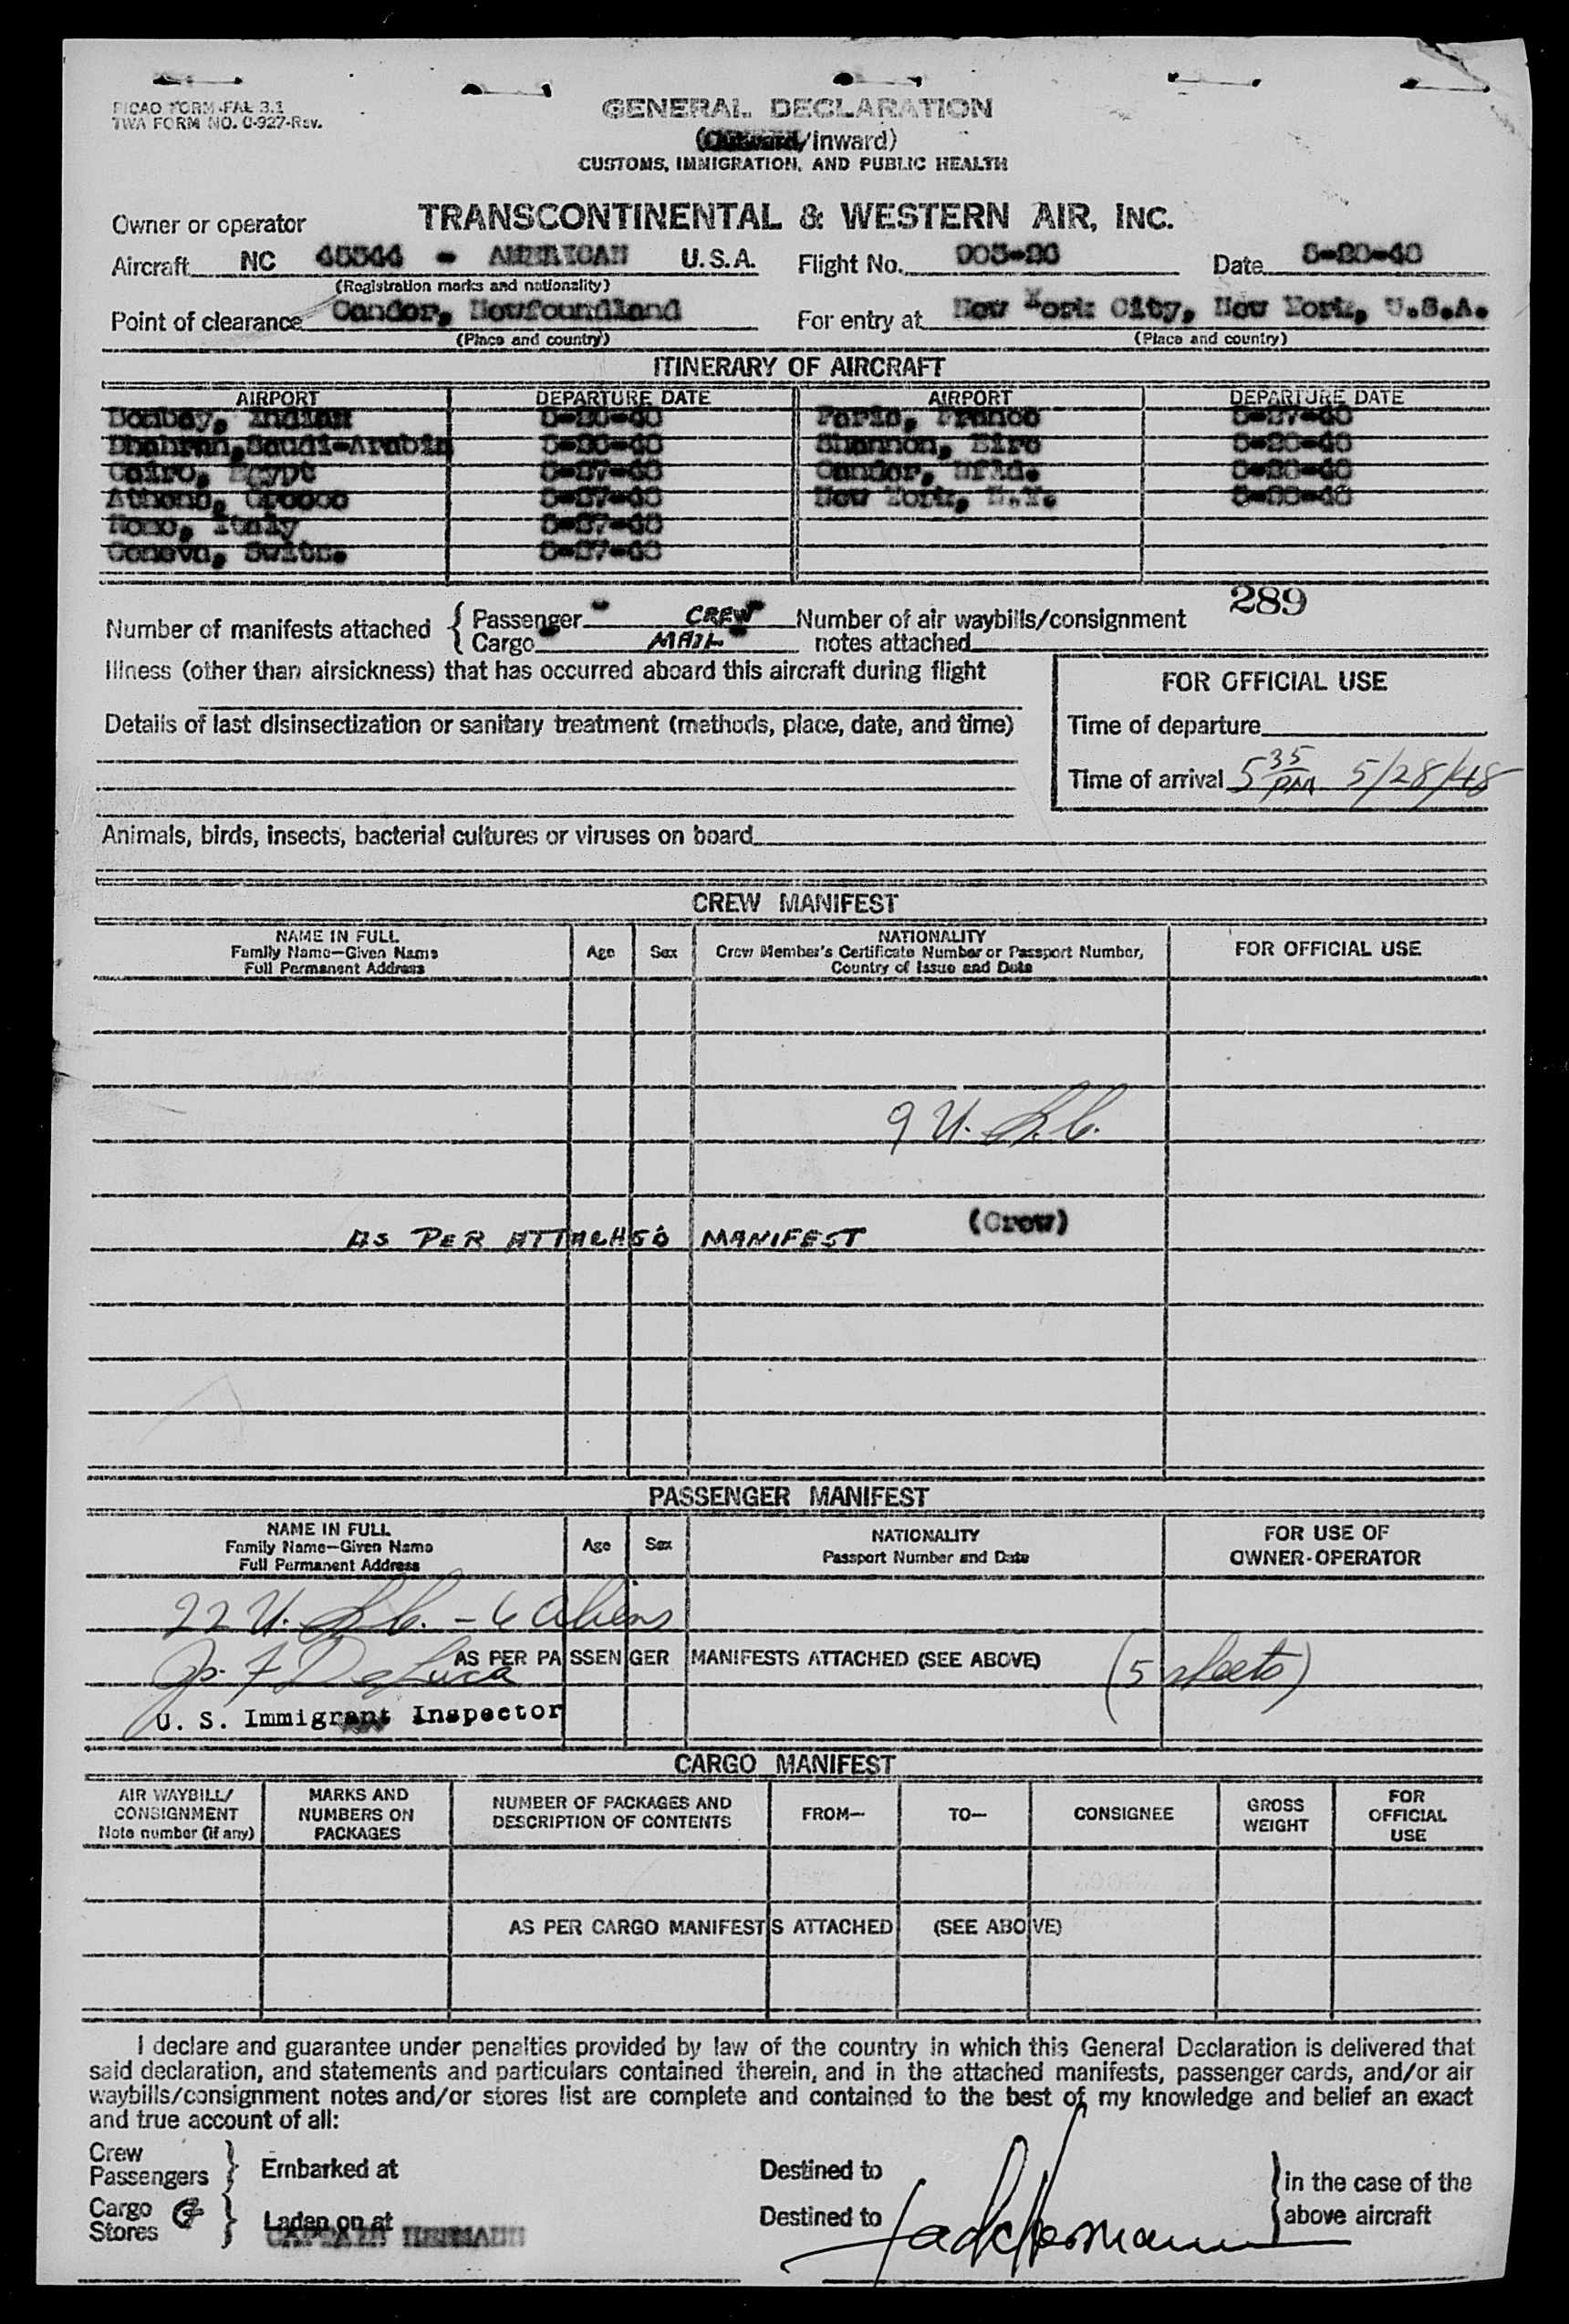 PICAO FORM-FAL 3.1
TWA FORM NO. C-927-Rev.
GENERAL DECLARATION
(Outward/Inward)
CUSTOMS, IMMIGRATION, AND PUBLIC HEALTH
Owner or operator TRANSCONTINENTAL & WESTERN AIR, INC.
Aircraft NC - AMERICAN U.S.A. Flight No. Date 5-28-48
(Registration marks and nationality)
Point of clearance Gander, Newfoundland For entry at New York City, New York, U.S.A.
(Place and country) (Place and country)
ITINERARY OF AIRCRAFT
AIRPORT DEPARTURE DATE AIRPORT DEPARTURE DATE
Bombay, Paris, France 5-27-48
Dhahran, Saudi-Arabia Shannon, Eire 5-28-48
Cairo, Egypt 5-27-48 Gander, Nfld. 5-28-48
Athens, Greece 5-27-48 New York, N.Y. 5-28-48
Rome, Italy 5-27-48
Geneva, Switz. 5-27-48
289
Number of manifests attached { Passenger CREW Number of air waybills/consignment
Cargo MAIL notes attached
Illness (other than airsickness) that has occurred aboard this aircraft during flight
FOR OFFICIAL USE
Details of last disinsectization or sanitary treatment (methods, place, date, and time)
Time of departure
Time of arrival 5 35 PM 5/28/48
Animals, birds, insects, bacterial cultures or viruses on board
CREW MANIFEST
NAME IN FULL
Family Name—Given Name
Full Permanent Address
Age
Sex
NATIONALITY
Crew Member's Certificate Number or Passport Number,
Country of Issue and Date
FOR OFFICIAL USE
9 U. S. C.
AS PER ATTACHED MANIFEST (Crew)
PASSENGER MANIFEST
NAME IN FULL
Family Name—Given Name
Full Permanent Address
Age
Sex
NATIONALITY
Passport Number and Date
FOR USE OF
OWNER-OPERATOR
22 U. S. C. - 6 Aliens
AS PER PASSENGER MANIFESTS ATTACHED (SEE ABOVE) (5 sheets)
F DeLuca
U. S. Immigrant Inspector
CARGO MANIFEST
AIR WAYBILL/
CONSIGNMENT
Note number (if any)
MARKS AND
NUMBERS ON
PACKAGES
NUMBER OF PACKAGES AND
DESCRIPTION OF CONTENTS
FROM—
TO—
CONSIGNEE
GROSS
WEIGHT
FOR
OFFICIAL
USE
AS PER CARGO MANIFESTS ATTACHED (SEE ABOVE)
I declare and guarantee under penalties provided by law of the country in which this General Declaration is delivered that
said declaration, and statements and particulars contained therein, and in the attached manifests, passenger cards, and/or air
waybills/consignment notes and/or stores list are complete and contained to the best of my knowledge and belief an exact
and true account of all:
Crew
Passengers } Embarked at Destined to } in the case of the
Cargo
Stores } Laden on at Destined to above aircraft
CAPTAIN HERMANN
Jack Hermann